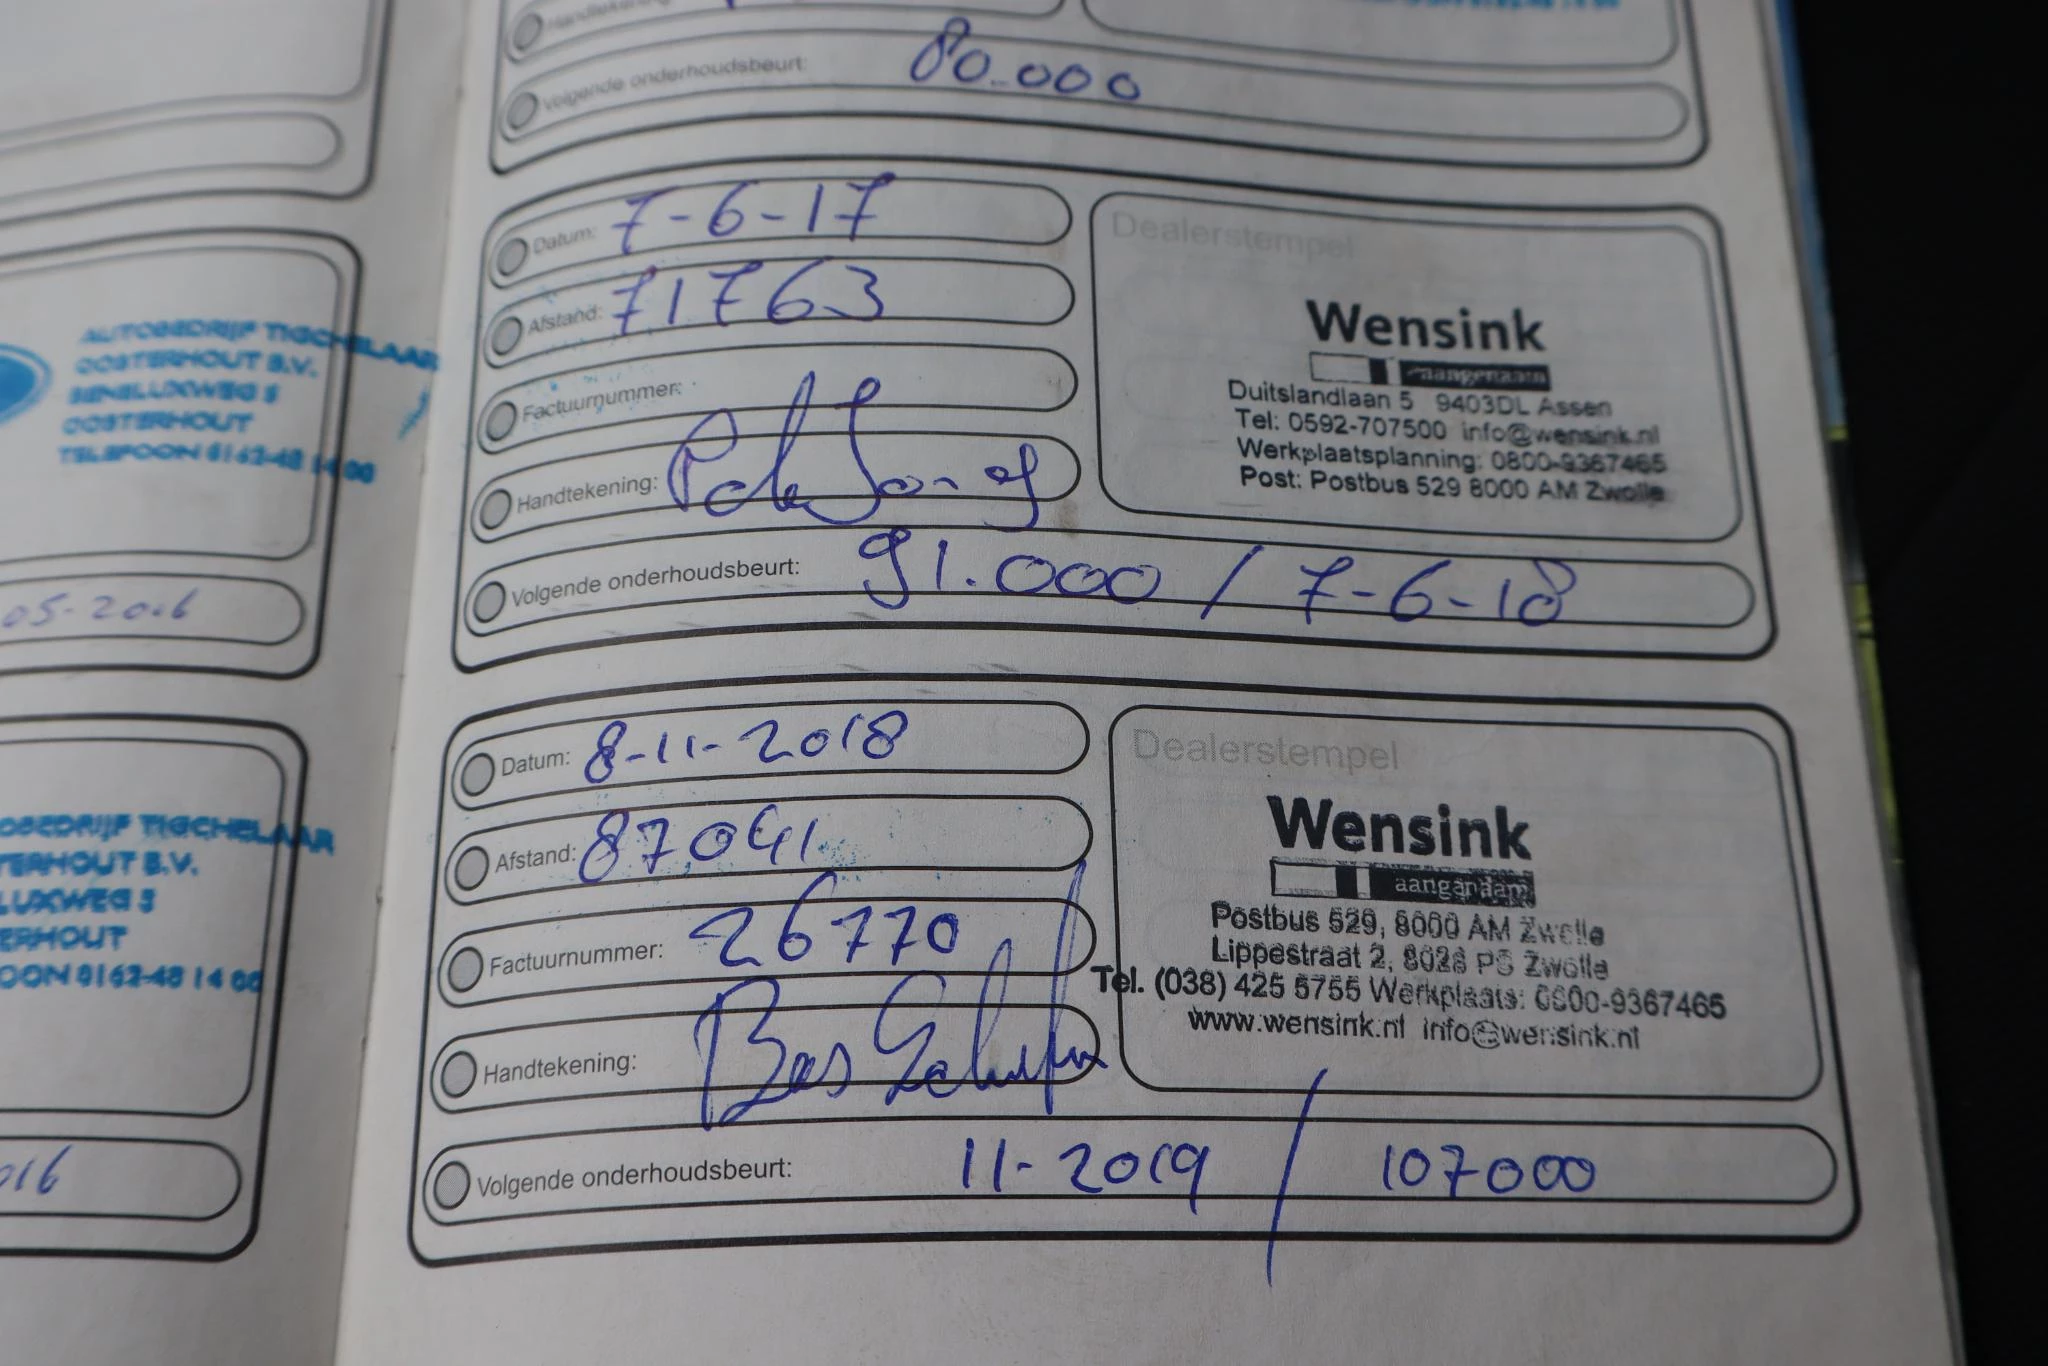 AUTOBEDRIJF TIGCHELAAR
OOSTERHOUT B.V.
BENELUXWEG 5
OOSTERHOUT
TELEFOON 0162-48 14 00
05-2016
OBEDRIJF TIGCHELAAR
TERHOUT B.V.
LUXWEG 5
ERHOUT
OON 0162-48 14 00
016
Handtekening:
Volgende onderhoudsbeurt: 80.000
Datum: 7-6-17
Afstand: 71763
Factuurnummer:
Handtekening:
Volgende onderhoudsbeurt: 91.000 / 7-6-18
Dealerstempel
Wensink
aangenaam
Duitslandlaan 5 9403DL Assen
Tel: 0592-707500 info@wensink.nl
Werkplaatsplanning: 0800-9367465
Post: Postbus 529 8000 AM Zwolle
Datum: 8-11-2018
Afstand: 87041
Factuurnummer: 26770
Handtekening: Bas
Volgende onderhoudsbeurt: 11-2019 / 107000
Dealerstempel
Wensink
aangenaam
Postbus 529, 8000 AM Zwolle
Lippestraat 2, 8028 PS Zwolle
Tel. (038) 425 5755 Werkplaats: 0800-9367465
www.wensink.nl info@wensink.nl